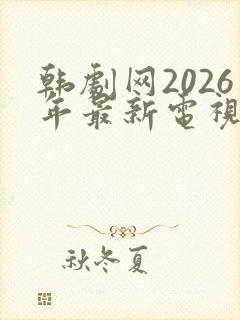 韩劇网2026
年最新電視
秋冬夏